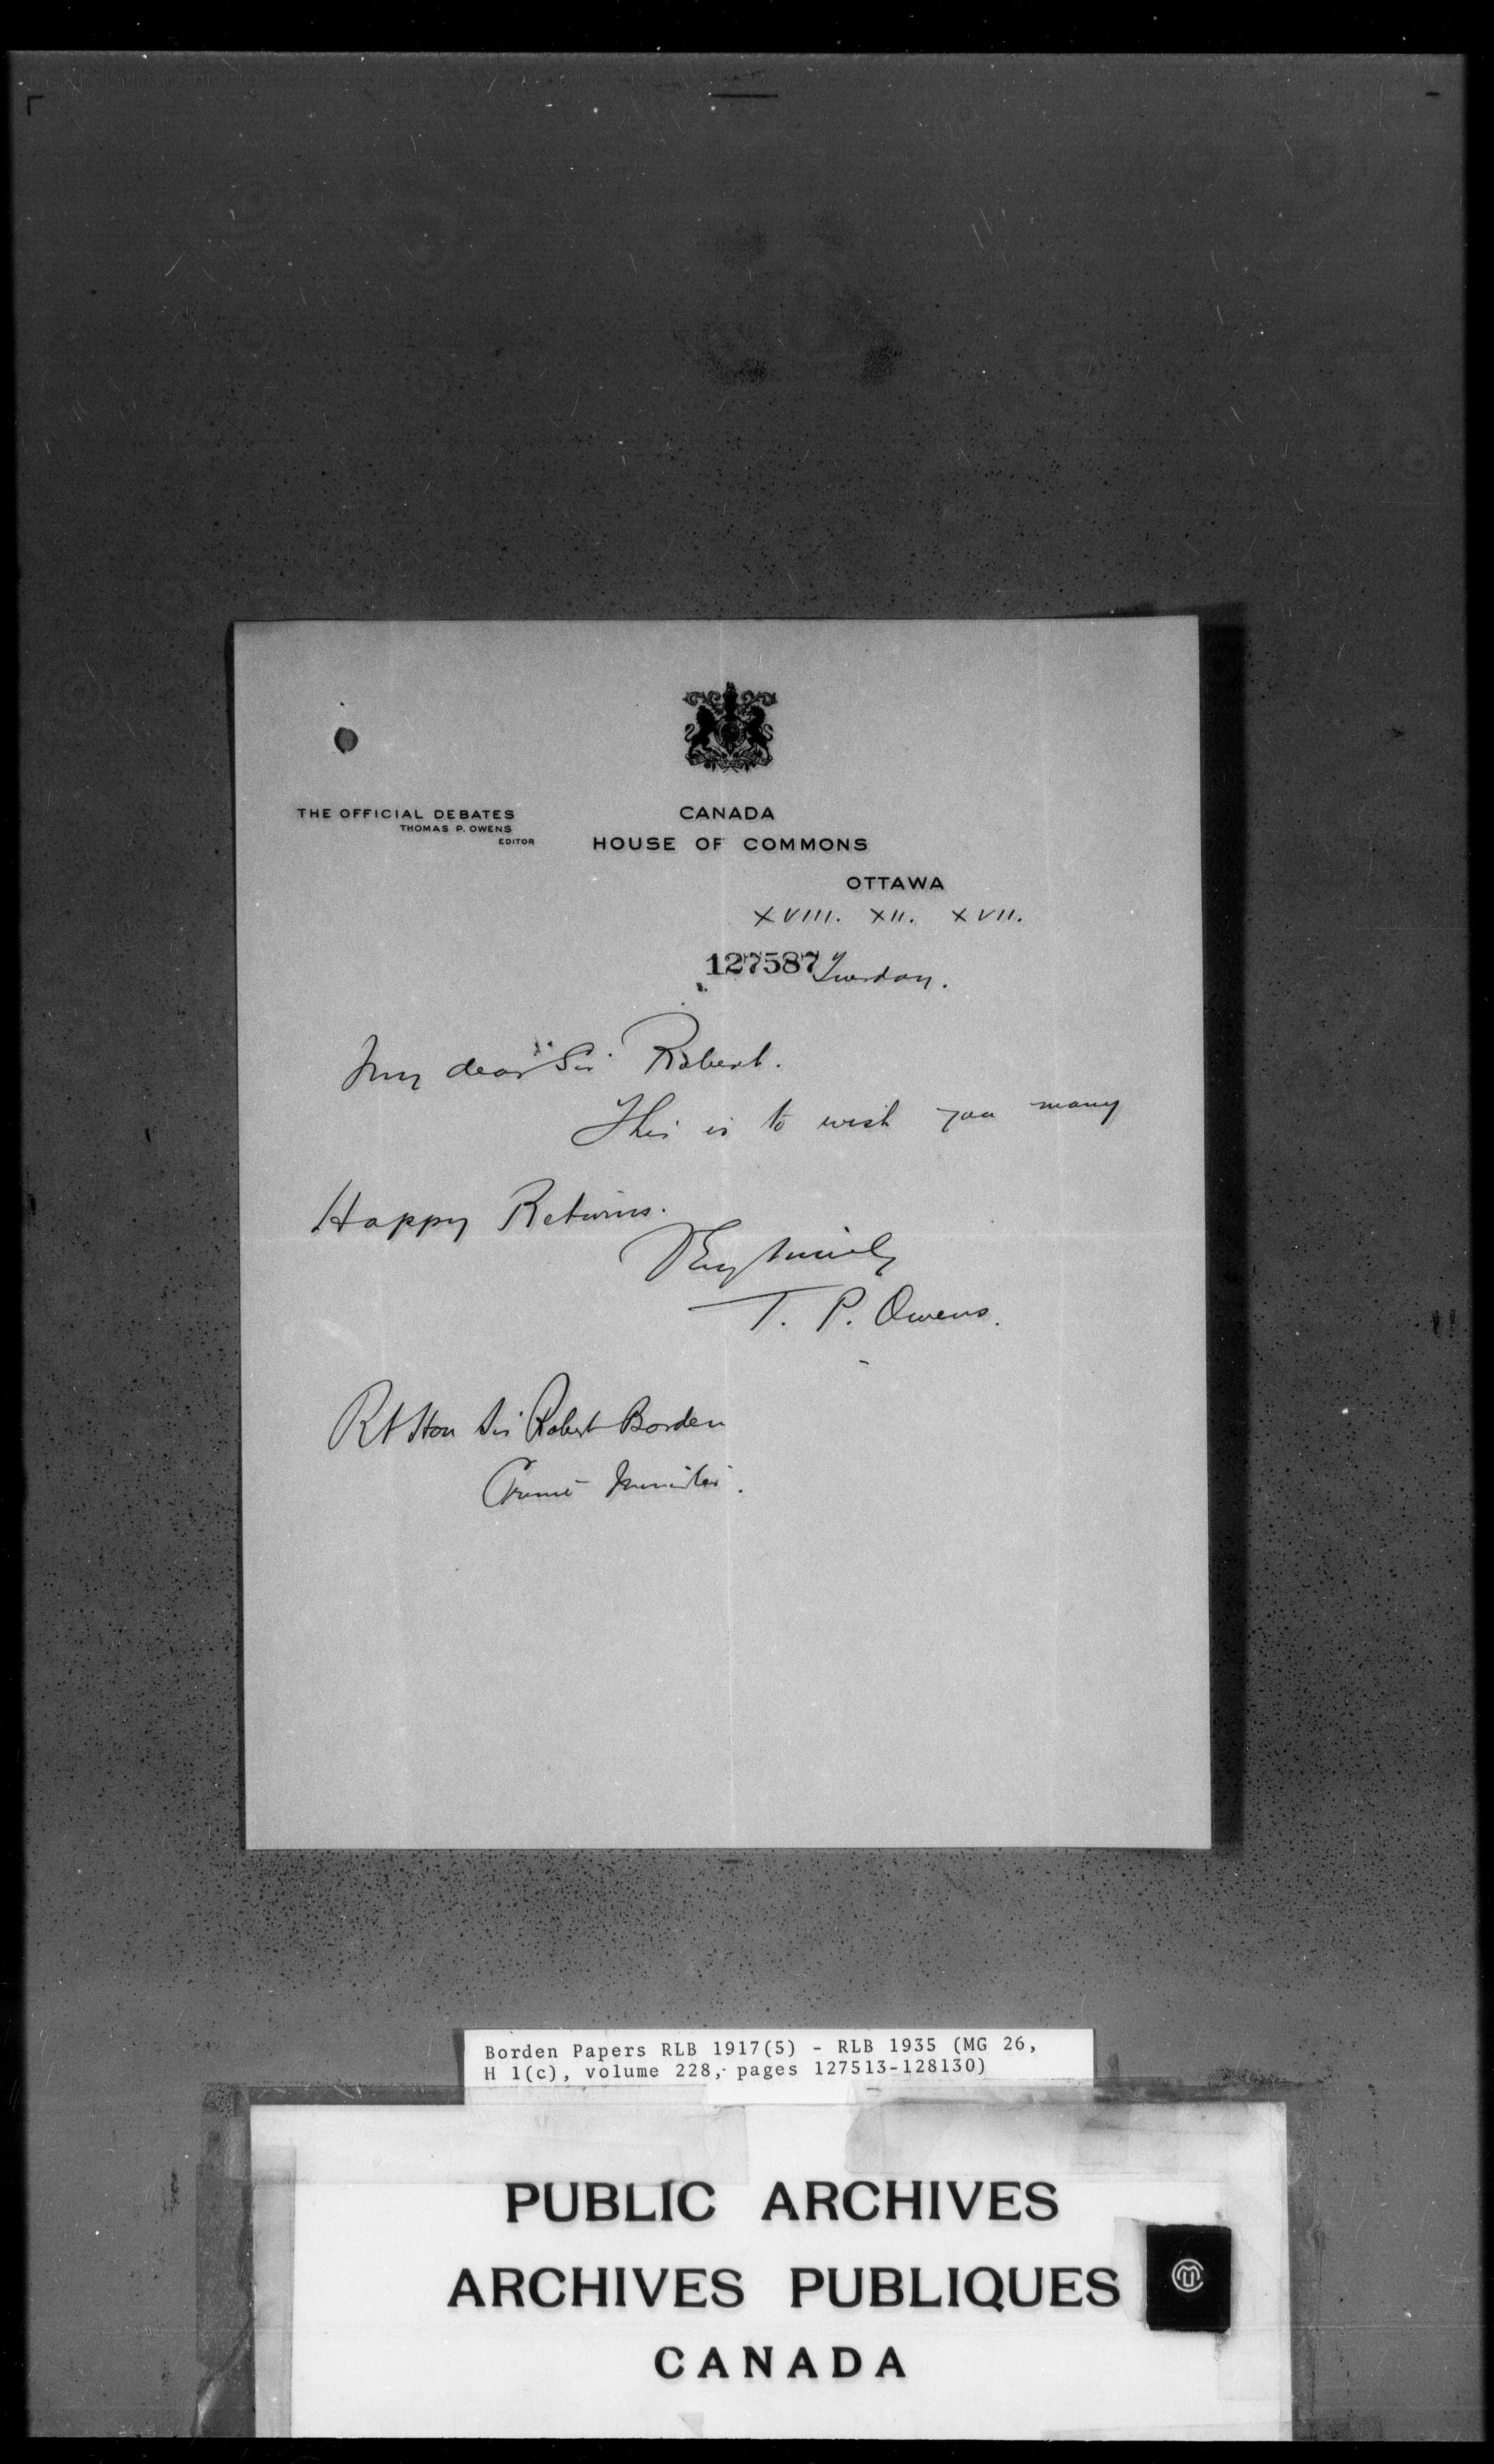 THE OFFICIAL DEBATES
THOMAS P. OWENS
EDITOR
CANADA
HOUSE OF COMMONS
OTTAWA
XVIII. XII. XVII.
127587 Tuesday.
My dear Sir Robert.
This is to wish you many
Happy Returns.
Very sincerely
T. P. Owens.
Rt Hon Sir Robert Borden
Prime Minister.
Borden Papers RLB 1917(5) - RLB 1935 (MG 26,
H 1(c), volume 228, pages 127513-128130)
PUBLIC ARCHIVES
ARCHIVES PUBLIQUES
CANADA